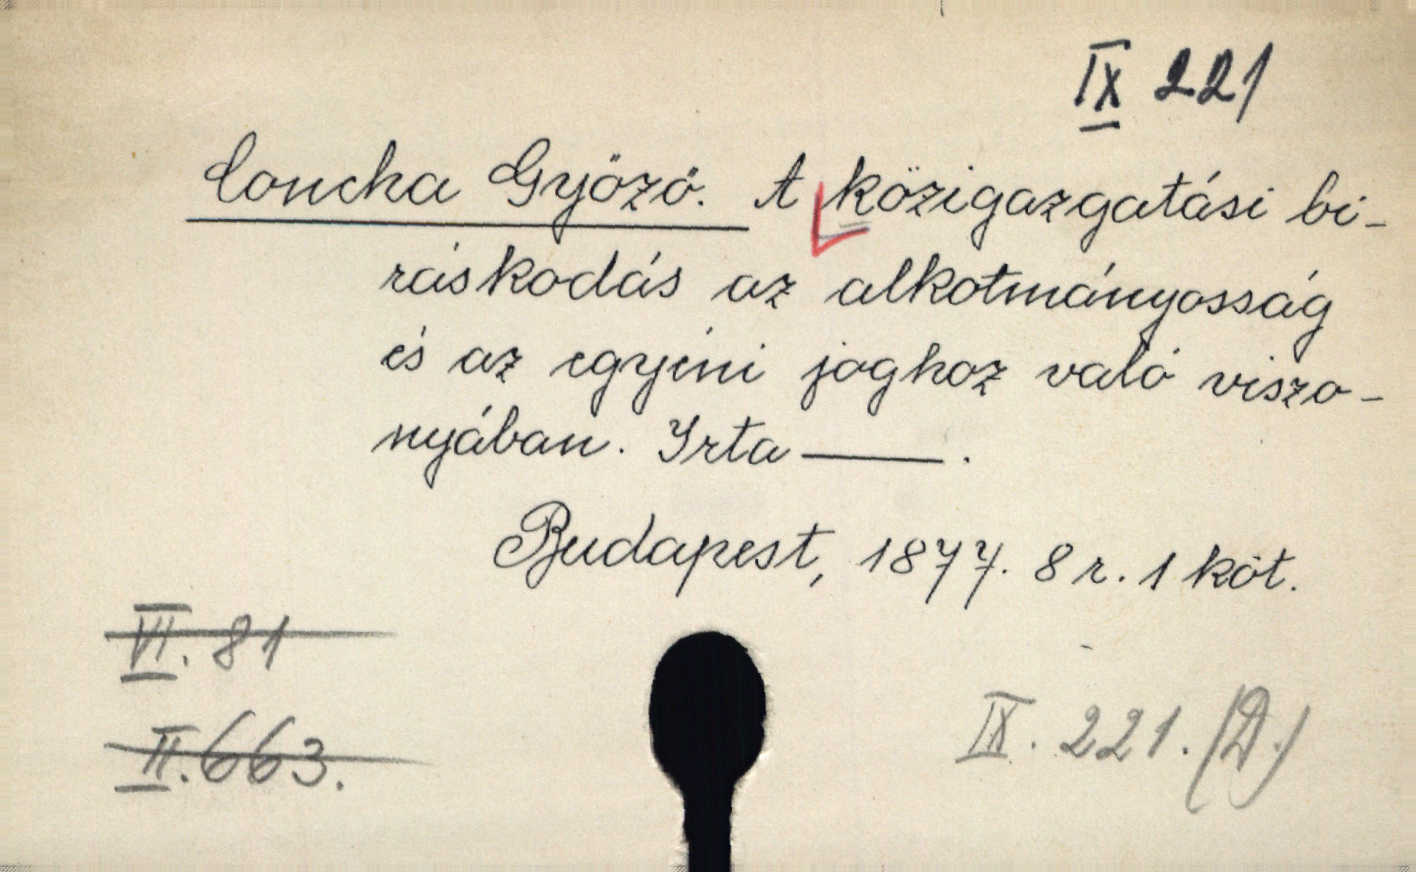 IX 221
Concha Győző. A közigazgatási bi-
ráskodás az alkotmányosság
és az egyéni joghoz való viszo-
nyában. Irta ——.
Budapest, 1877. 8 r. 1 köt.
VI. 81
II. 663.
IX. 221. (D.)